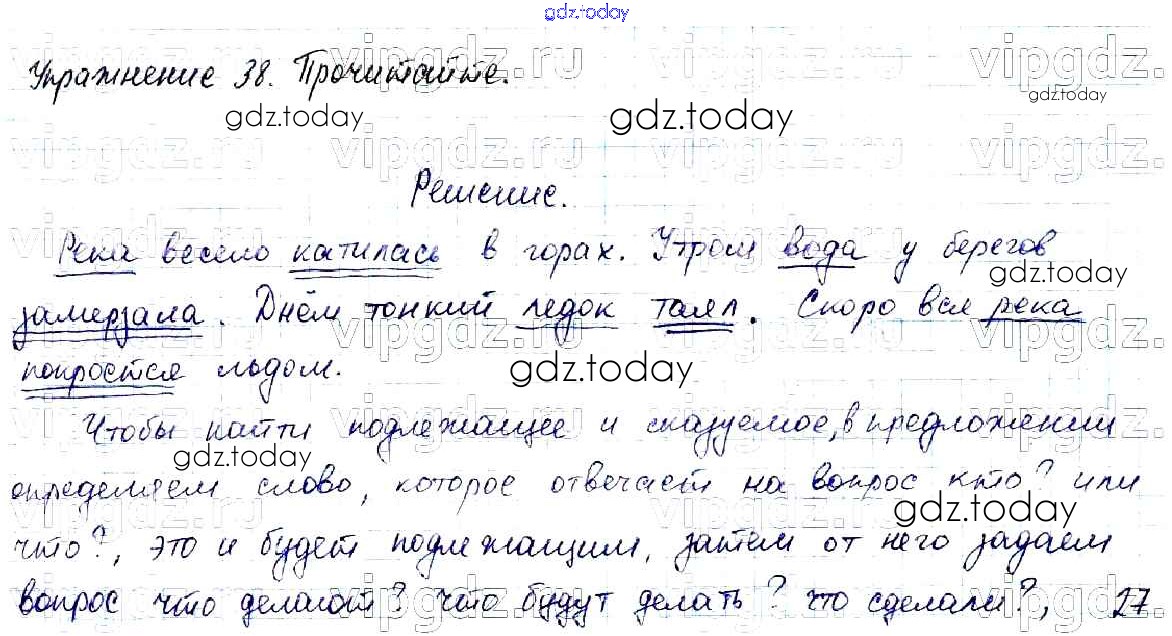 gdz.today
Упражнение 38. Прочитайте.
Решение.
Река весело катилась в горах. Утром вода у берегов
замерзала. Днём тонкий ледок таял. Скоро вся река
покроется льдом.
Чтобы найти подлежащее и сказуемое, в предложении
определяем слово, которое отвечает на вопрос кто? или
что?, это и будет подлежащим, затем от него задаем
вопрос что делают? что будут делать? что сделали?, 27